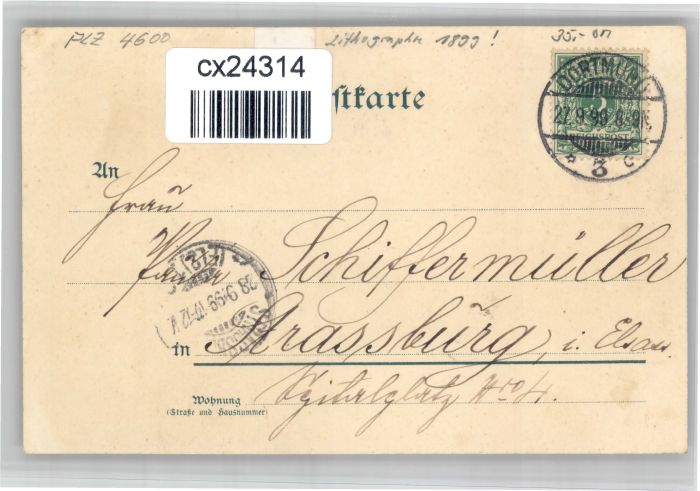 PLZ 4600
Lithographie 1899!
35,- DM
cx24314
stkarte
DORTMUND
27.9.99 8-9N.
* 3 c
REICHSPOST
An
Frau
Schiffermüller
28.9.99. 11-12 V.
in Strassburg, i. Elsass.
Wohnung
(Straße und Hausnummer)
Spitalplatz Nro 4.